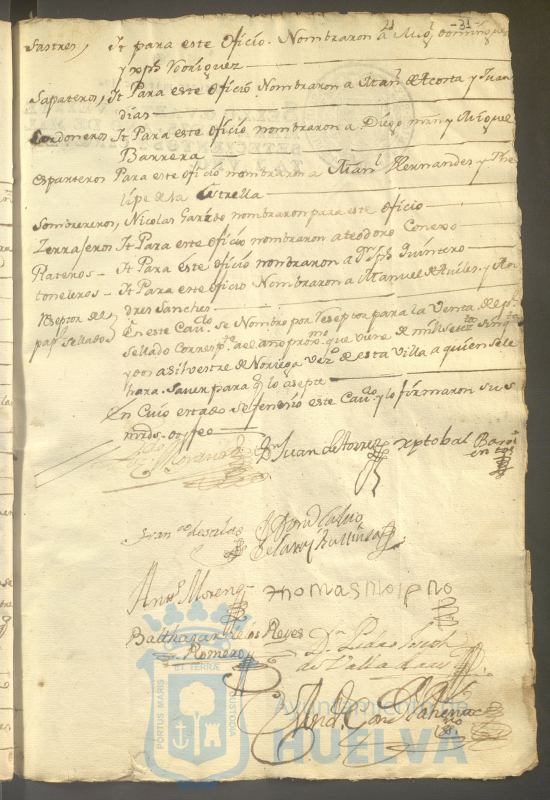 -31-
Sastres, It para este Oficio. Nombraron a Migl Domingues
y xpl Rodriguez
Sapateros, It Para este oficio Nombraron a Manl de Acosta y Juan
dias
Cordoneros It Para este Oficio nombraron a Diego mrn y Miguel
Barrera
Esparteros Para este oficio nombraron a Manl Hernandes y Phe
lipe de la Estrella
Sombrereros, Nicolas Garrido nombraron para este oficio
Zerrajeros It Para este oficio nombraron a teodoro Conexo
Plateros - It Para este oficio nombraron a Dn Jph Quintero
toneleros - It Para este oficio Nombraron a Manuel de Aviles y An
dres Sanches
Reseptor del
papl sellado
En este Cavdo se Nombro por Reseptor para la Venta de papl
sellado Correspte ael año proxmo que viene de mil setes sinqta
y dos a silvestre de Noriega vezo de esta Villa a quien se le
hara saver para q lo asepte
En Cuio estado se fenesio este Cavdo y lo firmaron sus
mrds. doy fee
Dn Juan de torres
xptobal Barri
entos
Franco de
Anto Moreno
thomas Moreno
Balthazar de los Reyes
Romero
Dn Pedro
de
PORTUS MARIS ET TERRAE CUSTODIA
Ayuntamiento de
HUELVA